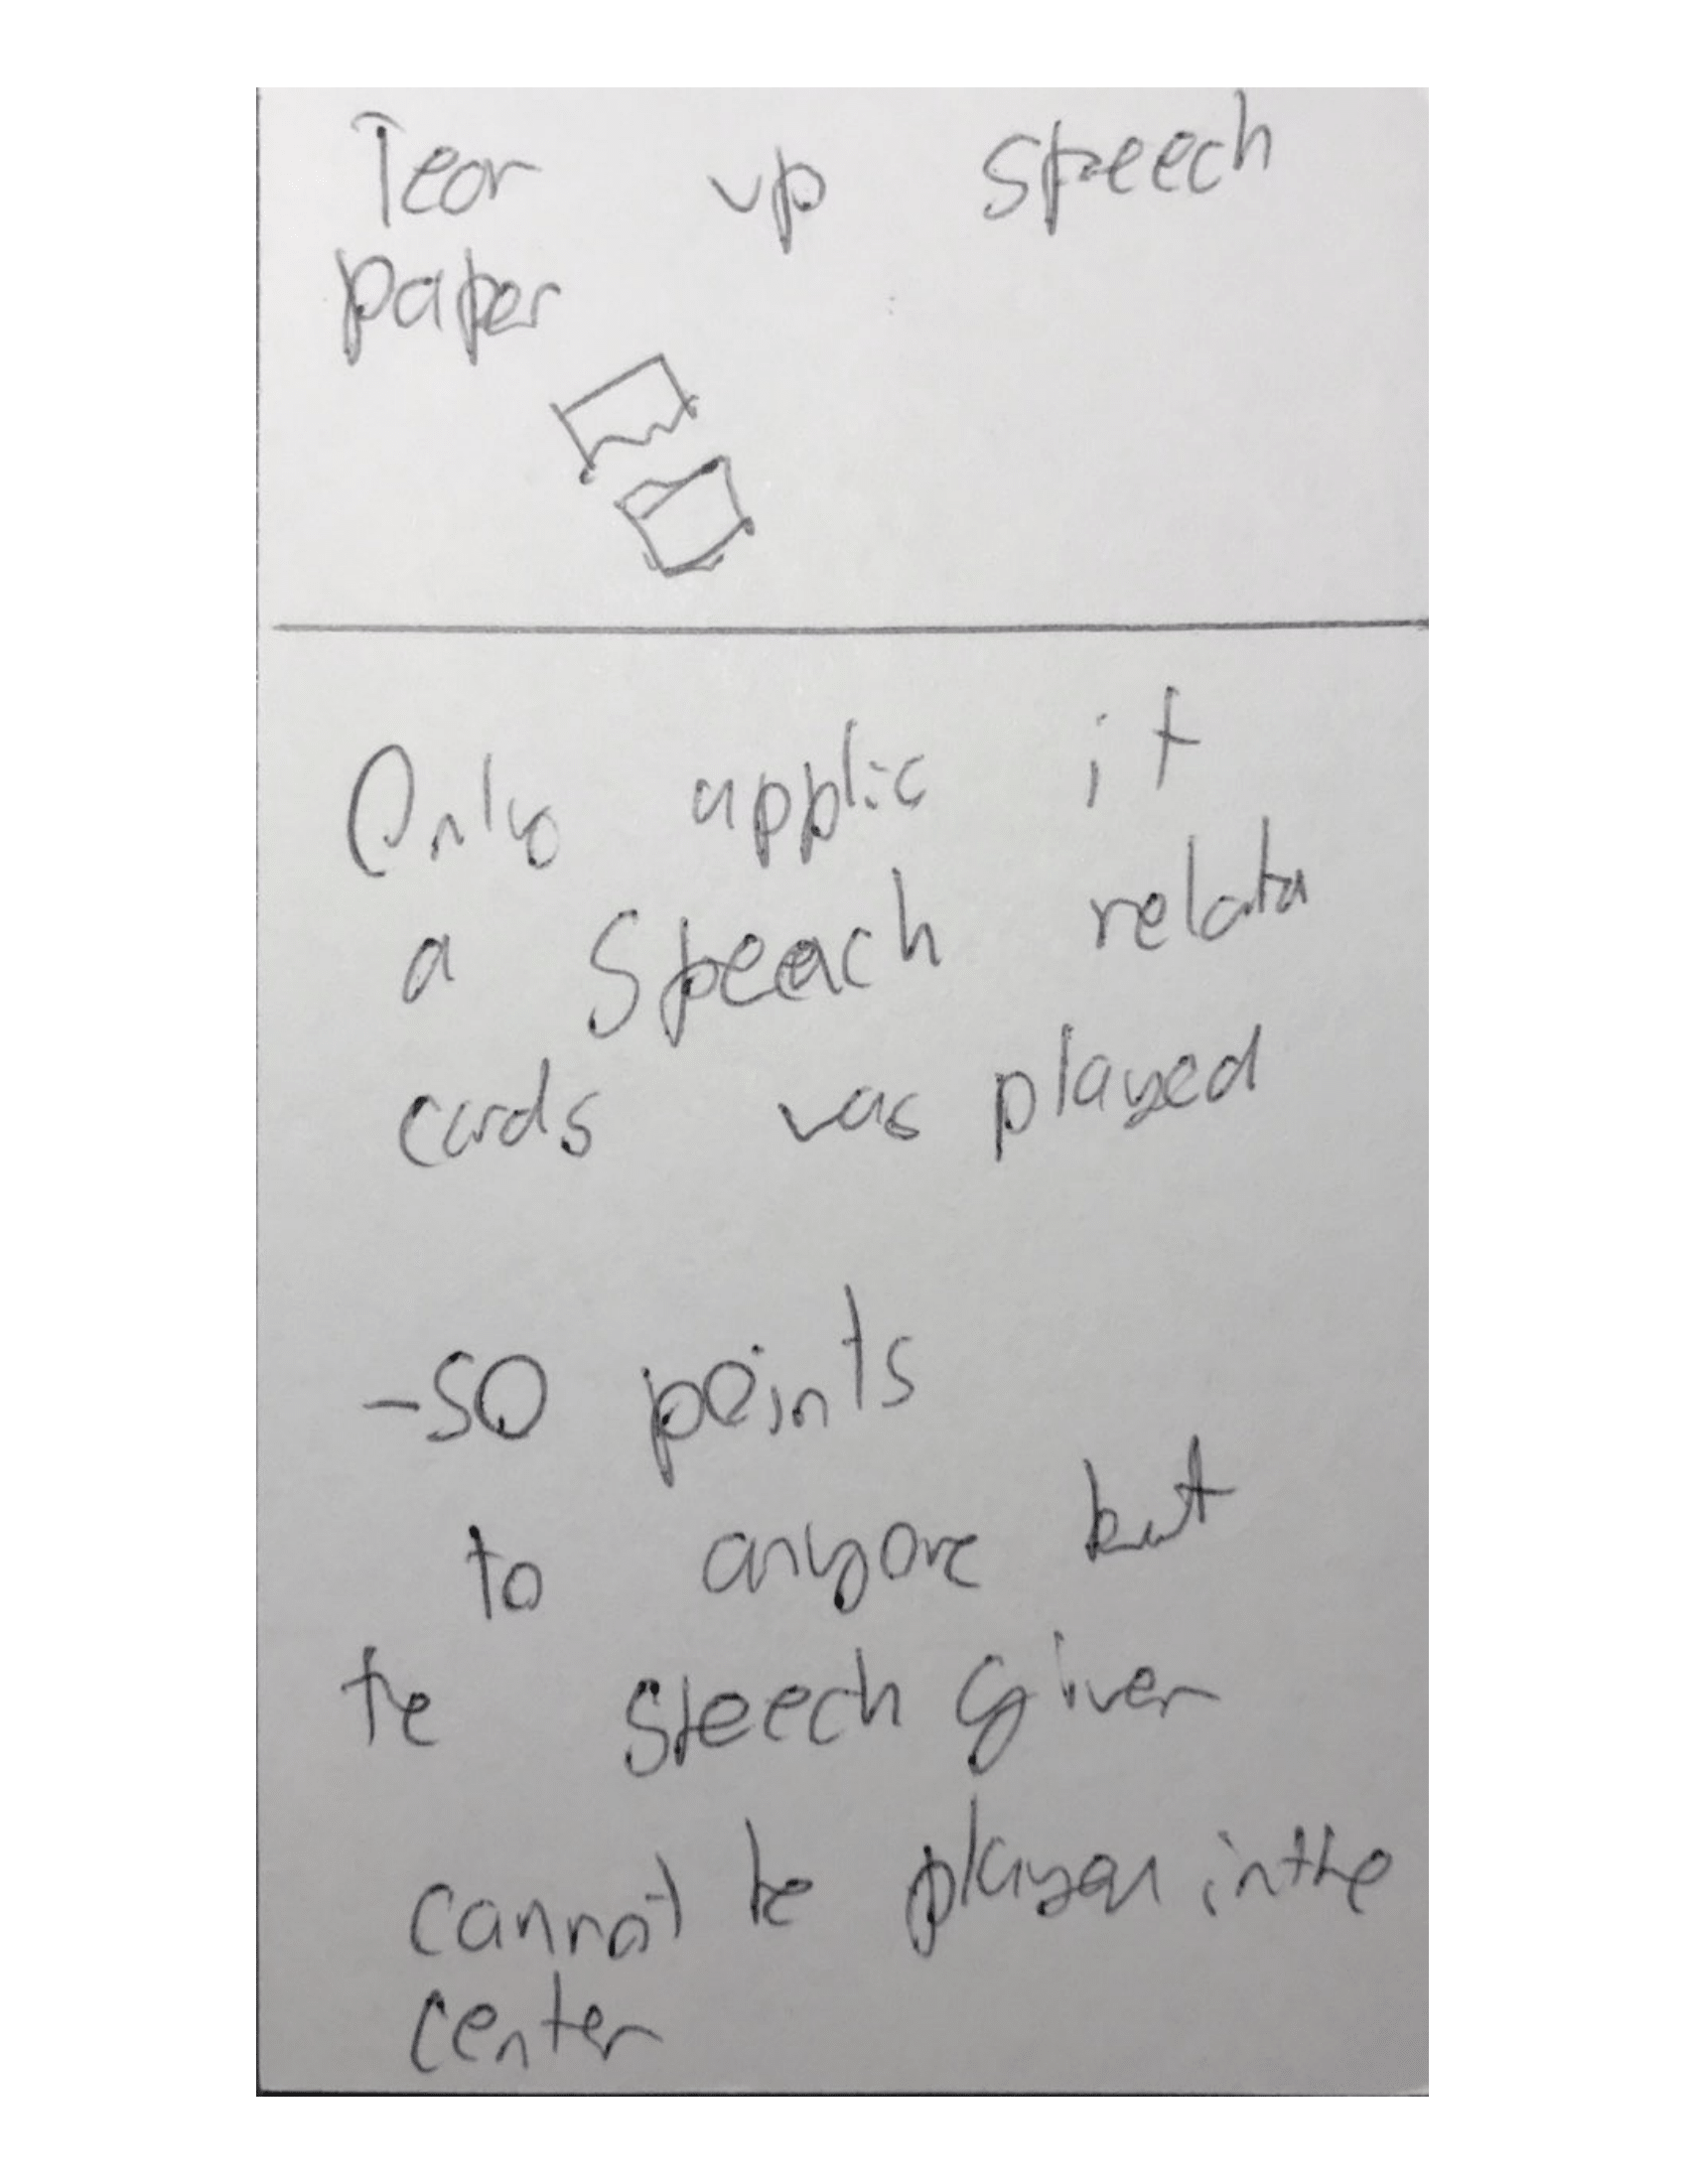 Tear up speech
paper
Only applic if
a Speeach relata
cards was played
-50 points
to anyone but
te Speech giver
cannot be played in the
center